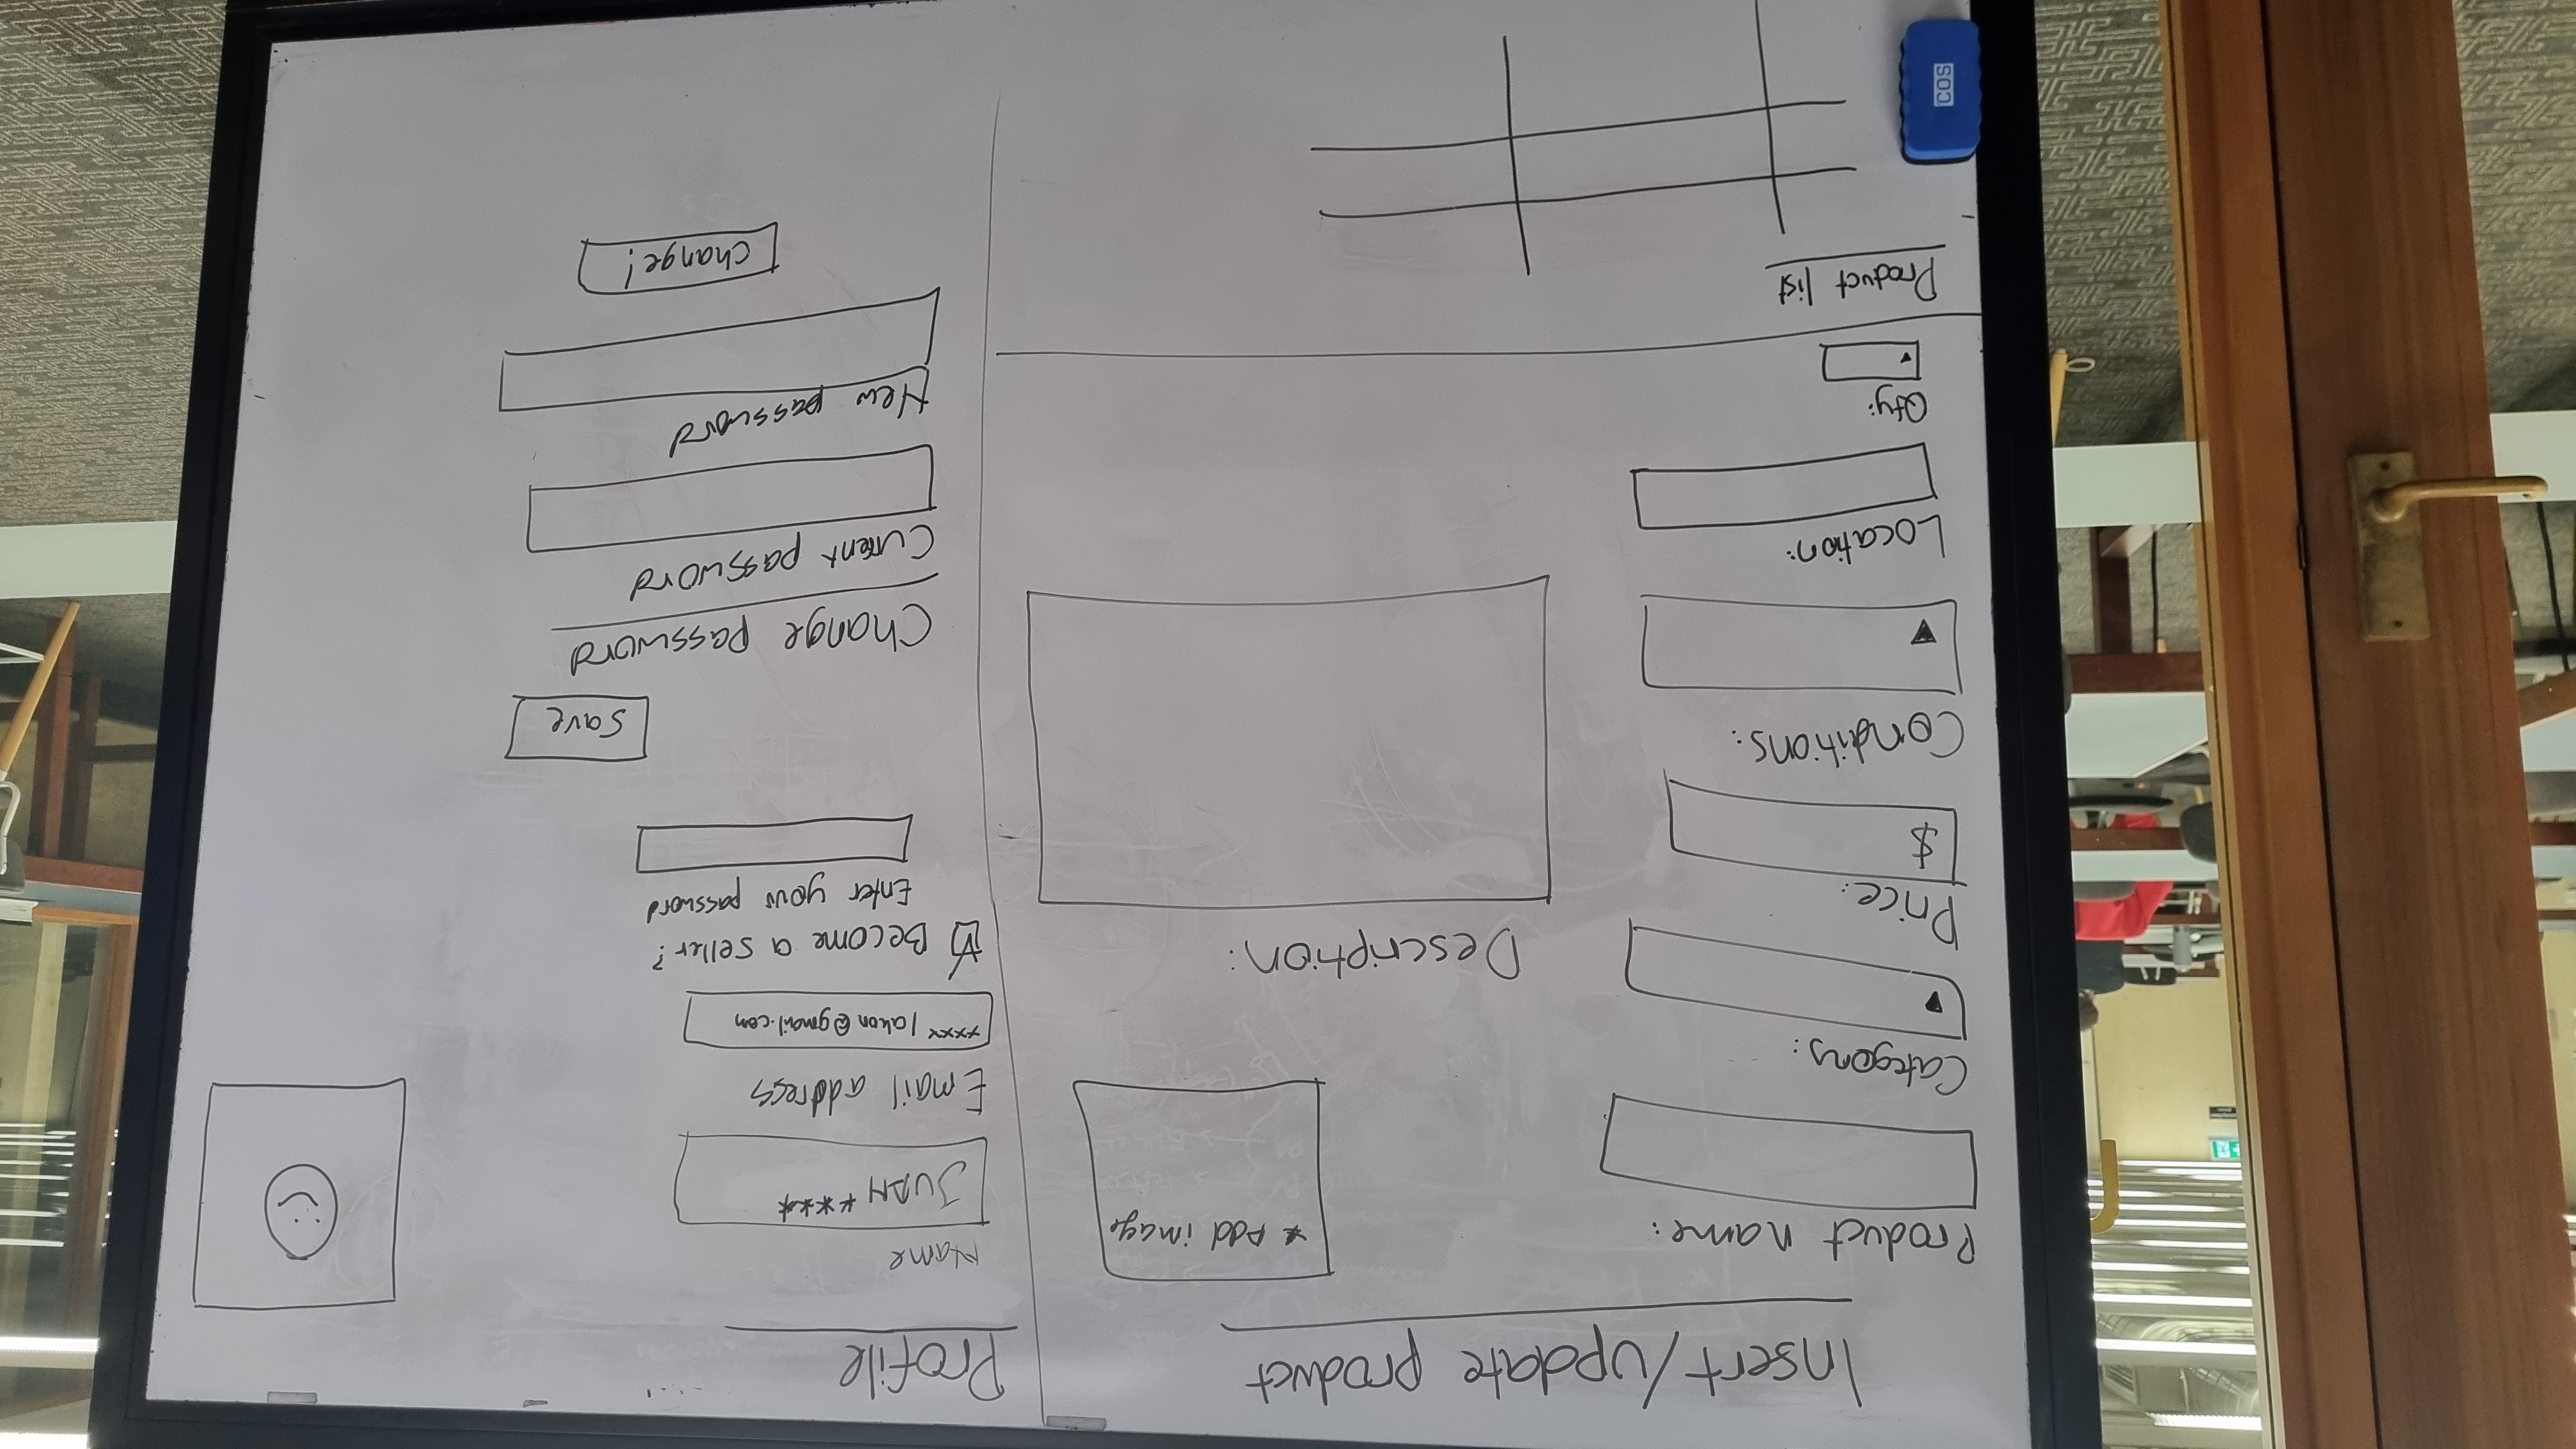 Insert/update product
Product name:
* Add image
Category:
Price:
$
Description:
Conditions:
Location:
Qty:
Product list
Profile
Name
JUAN ****
Email address
**** lakon@gmail.com
Become a seller?
Enter your password
save
Change password
Current password
New password
change!
COS